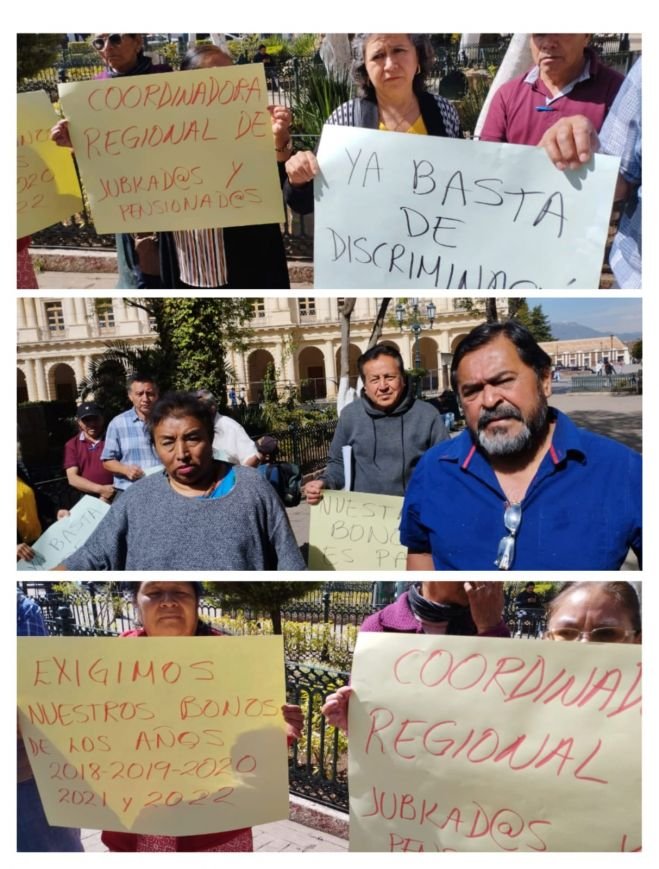 COORDINADORA
REGIONAL DE
JUBKAD@S Y
PENSIONAD@S
YA BASTA
DE
DISCRIMINAC
BASTA
NUEST
BONO
ES PA
EXIGIMOS
NUESTROS BONOS
DE LOS AÑOS
2018-2019-2020
2021 y 2022
COORDINAD
REGIONAL
JUBKAD@S Y